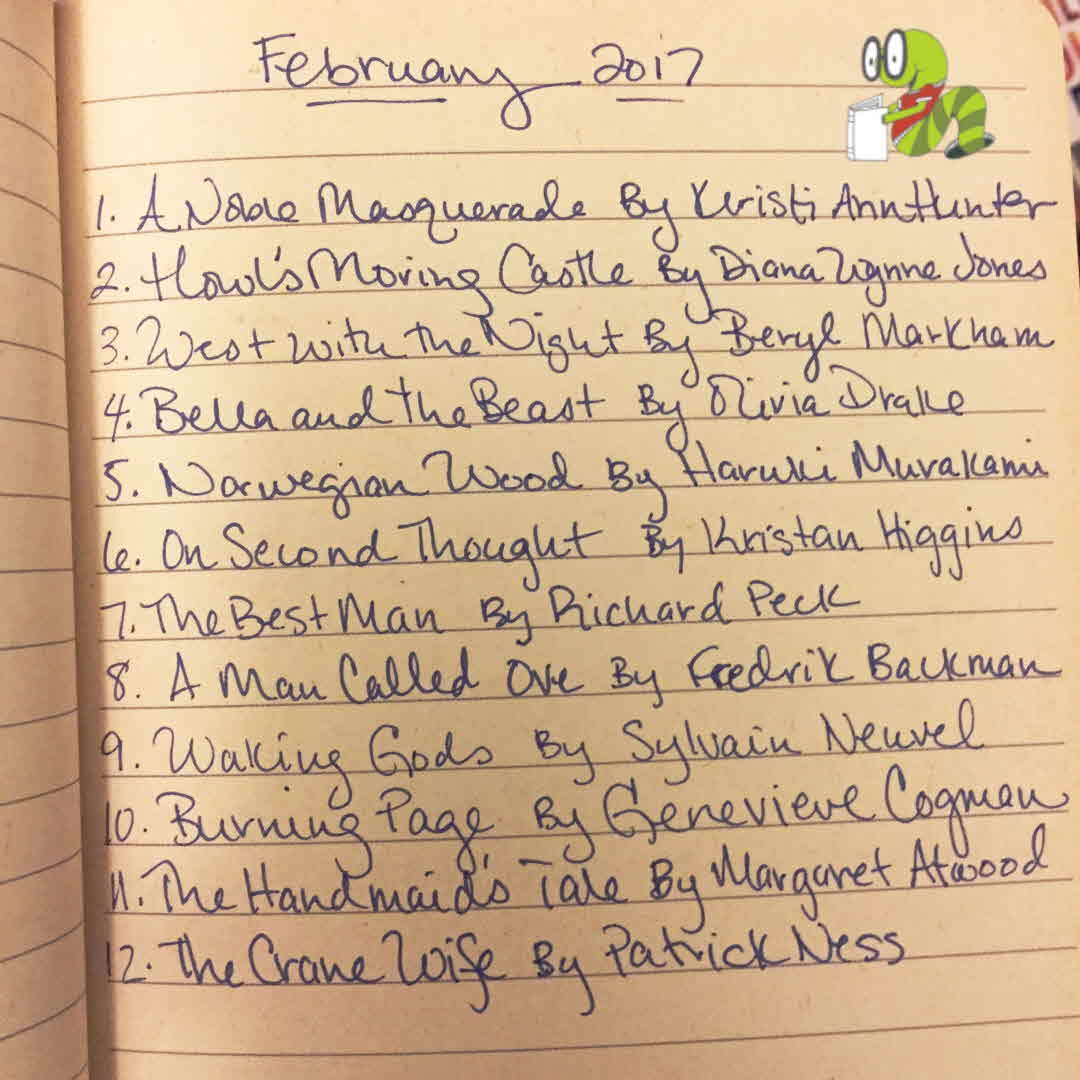 February 2017
1. A Noble Masquerade By Kristi Ann Hunter
2. Howl's Moving Castle By Diana Wynne Jones
3. West with the Night By Beryl Markham
4. Bella and the Beast By Olivia Drake
5. Norwegian Wood By Haruki Murakami
6. On Second Thought By Kristan Higgins
7. The Best Man By Richard Peck
8. A Man Called Ove By Fredrik Backman
9. Waking Gods By Sylvain Neuvel
10. Burning Page By Genevieve Cogman
11. The Handmaid's Tale By Margaret Atwood
12. The Crane Wife By Patrick Ness